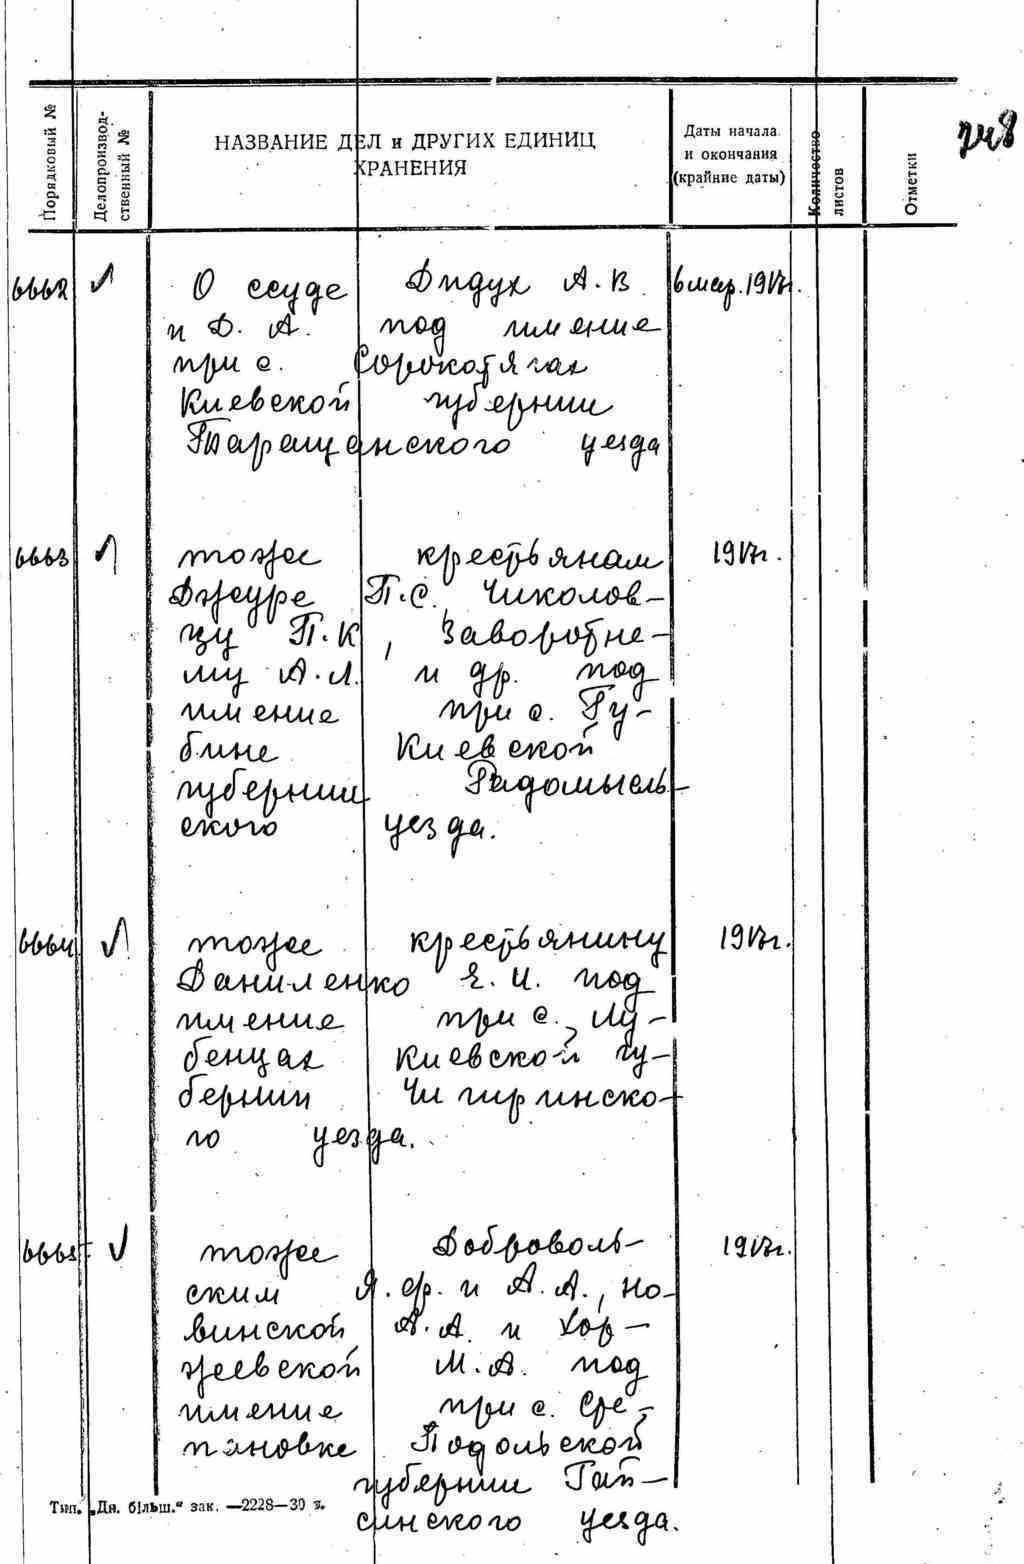 748
Порядковый №
Делопроизвод-
ственный №
НАЗВАНИЕ ДЕЛ и ДРУГИХ ЕДИНИЦ
ХРАНЕНИЯ
Даты начала
и окончания
(крайние даты)
Количество
листов
Отметки
6662 О ссуде Дидух А.В. 6 мар. 1917г.
и Д. А. под имение
при с. Сорокотягах
Киевской губернии
Таращанского уезда
6663 тоже крестьянам 1917г.
Джуре П.С. Чиколов-
цу П.К, Заворотне-
му А.Л. и др. под
имение при с. Ру-
бине Киевской
губернии Радомысль-
ского уезда.
6664 тоже крестьянину 1917г.
Даниленко Е.И. под
имение при с. Лу-
бенцах Киевской гу-
бернии Чигиринско-
го уезда.
6665 тоже Доброволь- 1917г.
ским Я.Ф. и А.А., Но-
винской А.А. и Хор-
жевской М.А. под
имение при с. Сте-
пановке Подольской
губернии Гай-
синского уезда.
Тип. „Дн. більш.“ зак. —2228—30 т.